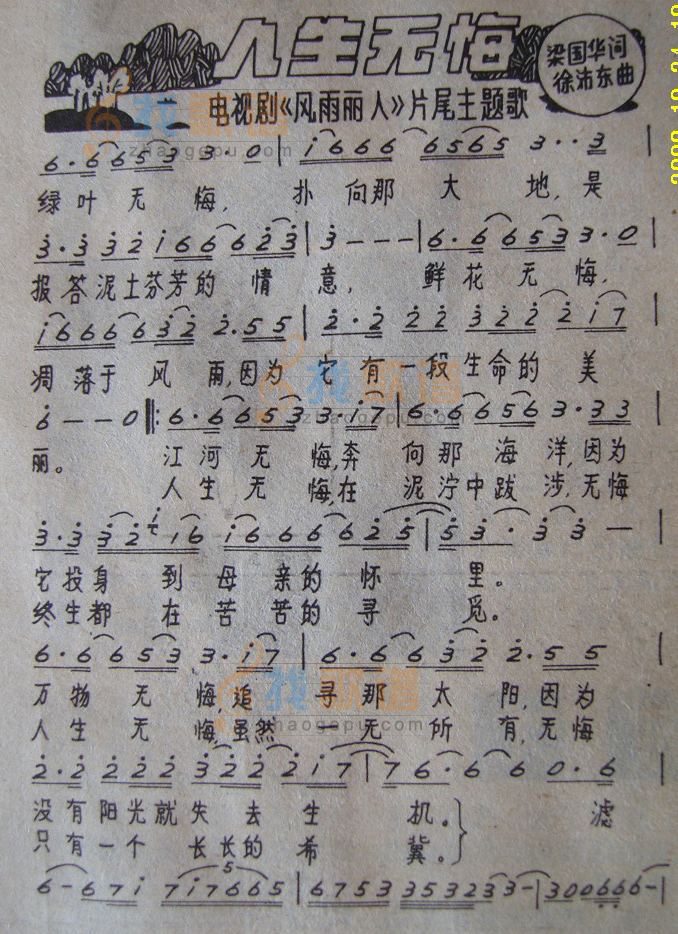 人生无悔
梁国华词
徐沛东曲
电视剧《风雨丽人》片尾主题歌
6·6 6 6 5 3 3·0 | i 6 6 6 6 5 6 5 3··3 |
绿叶无悔,扑向那大地,是
3·3 3 2 i 6 6 6 2 3 | 3 - - - | 6·6 6 5 3 3·0 |
报答泥土芬芳的情意,鲜花无悔,
i 6 6 6 6 3 2 2·5 5 | 2·2 2 2 3 2 2 2 i 7 |
凋落于风雨,因为它有一段生命的美
6 - - 0 ‖: 6·6 6 6 5 3 3·i 7 | 6·6 6 5 6 3·3 3
丽。江河无悔,奔向那海洋,因为
人生无悔,在泥泞中跋涉,无悔
3·3 3 2 i 6 i 6 6 6 6 2 5 | 5 3· 3 3 - |
它投身到母亲的怀里。
终生都在苦苦的寻觅。
6·6 6 5 3 3·i 7 | 6·6 6 3 2 2·5 5 |
万物无悔,追寻那太阳,因为
人生无悔,虽然一无所有,无悔
2·2 2 2 2 3 2 2 2 i 7 | 7 6·6 6 0·6 |
没有阳光就失去生机。滤
只有一个长长的希冀。
6 - 6 7 i 7 i 7 6 6 5 | 6 7 5 3 3 5 3 2 3 3 - | 3 0 0 6 6 6 - |
5
找歌谱
zhaogepu.com
找歌谱
zhaogepu.com
找歌谱
zhaogepu.com